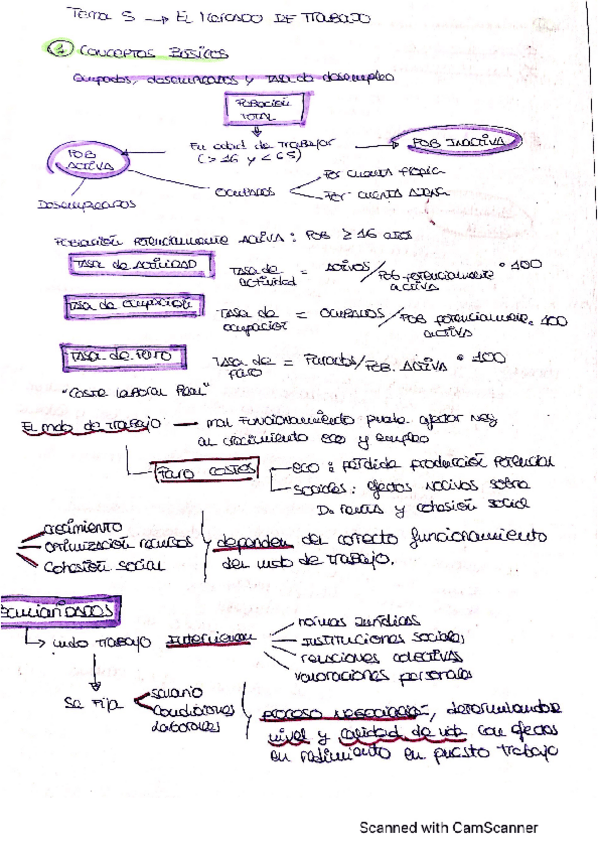 Tema 5 → El Mercado de Trabajo
1 Conceptos Básicos
Ocupados, desempleados y tasa de desempleo
Población
Total
Pob
Activa
En edad de trabajar
(> 16 y < 65)
Pob Inactiva
Ocupados
Por cuenta propia
Por cuenta ajena
Desempleados
Población potencialmente activa: Pob ≥ 16 años
Tasa de actividad
Tasa de actividad = Activos / Pob. potencialmente activa * 100
Tasa de ocupación
Tasa de ocupación = Ocupados / Pob potencialmente activa * 100
Tasa de Paro
Tasa de paro = Parados / Pob. Activa * 100
"Coste laboral Real"
El mdo de trabajo — mal funcionamiento puede afectar neg
al crecimiento eco y empleo
Paro costes
eco: pérdida producción potencial
sociales: efectos nocivos sobre
D° rentas y cohesión social
crecimiento
optimización recursos
Cohesión social
dependen del correcto funcionamiento
del mdo de trabajo.
mdo trabajo intervienen
normas jurídicas
instituciones sociales
relaciones colectivas
valoraciones personales
Se fija
salario
condiciones
laborales
proceso negociador, determinando
nivel y calidad de vida con efectos
en rendimiento en puesto trabajo
Scanned with CamScanner